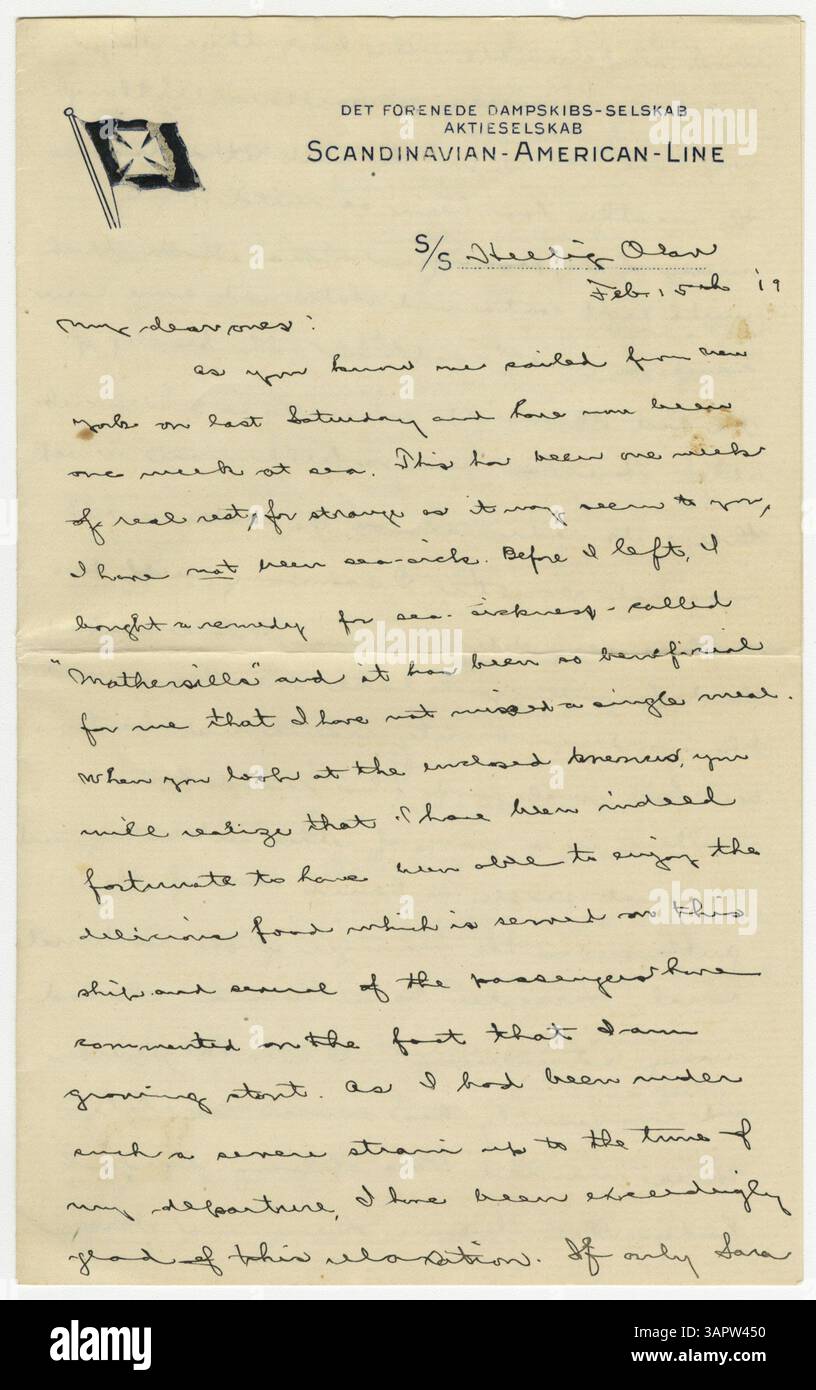 DET FORENEDE DAMPSKIBS-SELSKAB
AKTIESELSKAB
SCANDINAVIAN-AMERICAN-LINE
S/S Hellig Olav
Feb. 15th '19
My dear ones:
As you know we sailed from New
York on last Saturday and have now been
one week at sea. This has been one week
of real rest, for strange as it may seem to you,
I have not been sea-sick. Before I left, I
bought a remedy for sea-sickness - called
"Mothersills" and it has been so beneficial
for me that I have not missed a single meal.
When you look at the enclosed menus, you
will realize that I have been indeed
fortunate to have been able to enjoy the
delicious food which is served on this
ship and several of the passengers have
commented on the fact that I am
growing stout. As I had been under
such a severe strain up to the time of
my departure, I have been exceedingly
glad of this relaxation. If only Sara
alamy
a
alamy
Image ID: 3APW450
www.alamy.com